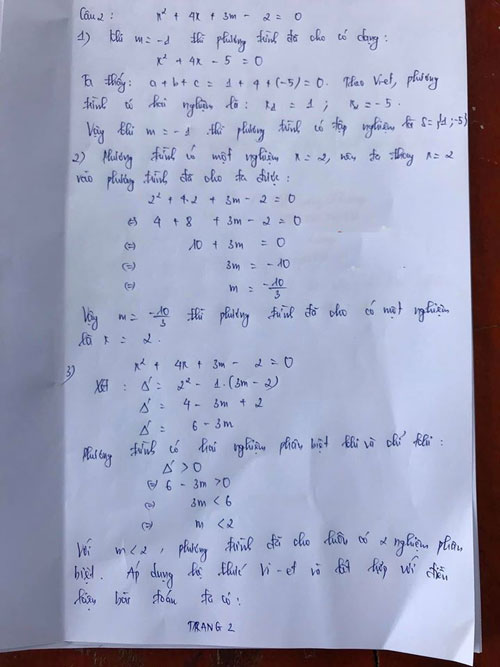 Câu 2: x² + 4x + 3m - 2 = 0
1) Khi m = -1 thì phương trình đã cho có dạng:
x² + 4x - 5 = 0
Ta thấy: a + b + c = 1 + 4 + (-5) = 0. Theo Vi-et, phương
trình có hai nghiệm là: x₁ = 1; x₂ = -5.
Vậy khi m = -1 thì phương trình có tập nghiệm là S = {1; -5}
2) Phương trình có một nghiệm x = 2, nên ta thay x = 2
vào phương trình đã cho ta được:
2² + 4.2 + 3m - 2 = 0
⇔ 4 + 8 + 3m - 2 = 0
⇔ 10 + 3m = 0
⇔ 3m = -10
⇔ m = -10/3
Vậy m = -10/3 thì phương trình đã cho có một nghiệm
là x = 2.
3) x² + 4x + 3m - 2 = 0
Xét: Δ' = 2² - 1.(3m - 2)
Δ' = 4 - 3m + 2
Δ' = 6 - 3m
Phương trình có hai nghiệm phân biệt khi và chỉ khi:
Δ' > 0
⇔ 6 - 3m > 0
⇔ 3m < 6
⇔ m < 2
Với m < 2, phương trình đã cho luôn có 2 nghiệm phân
biệt. Áp dụng hệ thức Vi-et và kết hợp với điều
kiện bài toán ta có:
TRANG 2